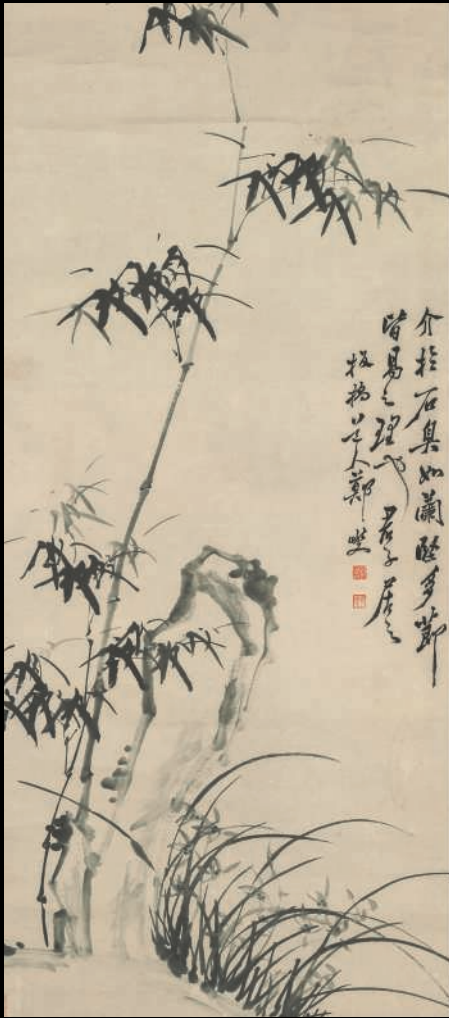 介於石臭如蘭堅多節
皆易之理也君子居之
板橋道人鄭燮